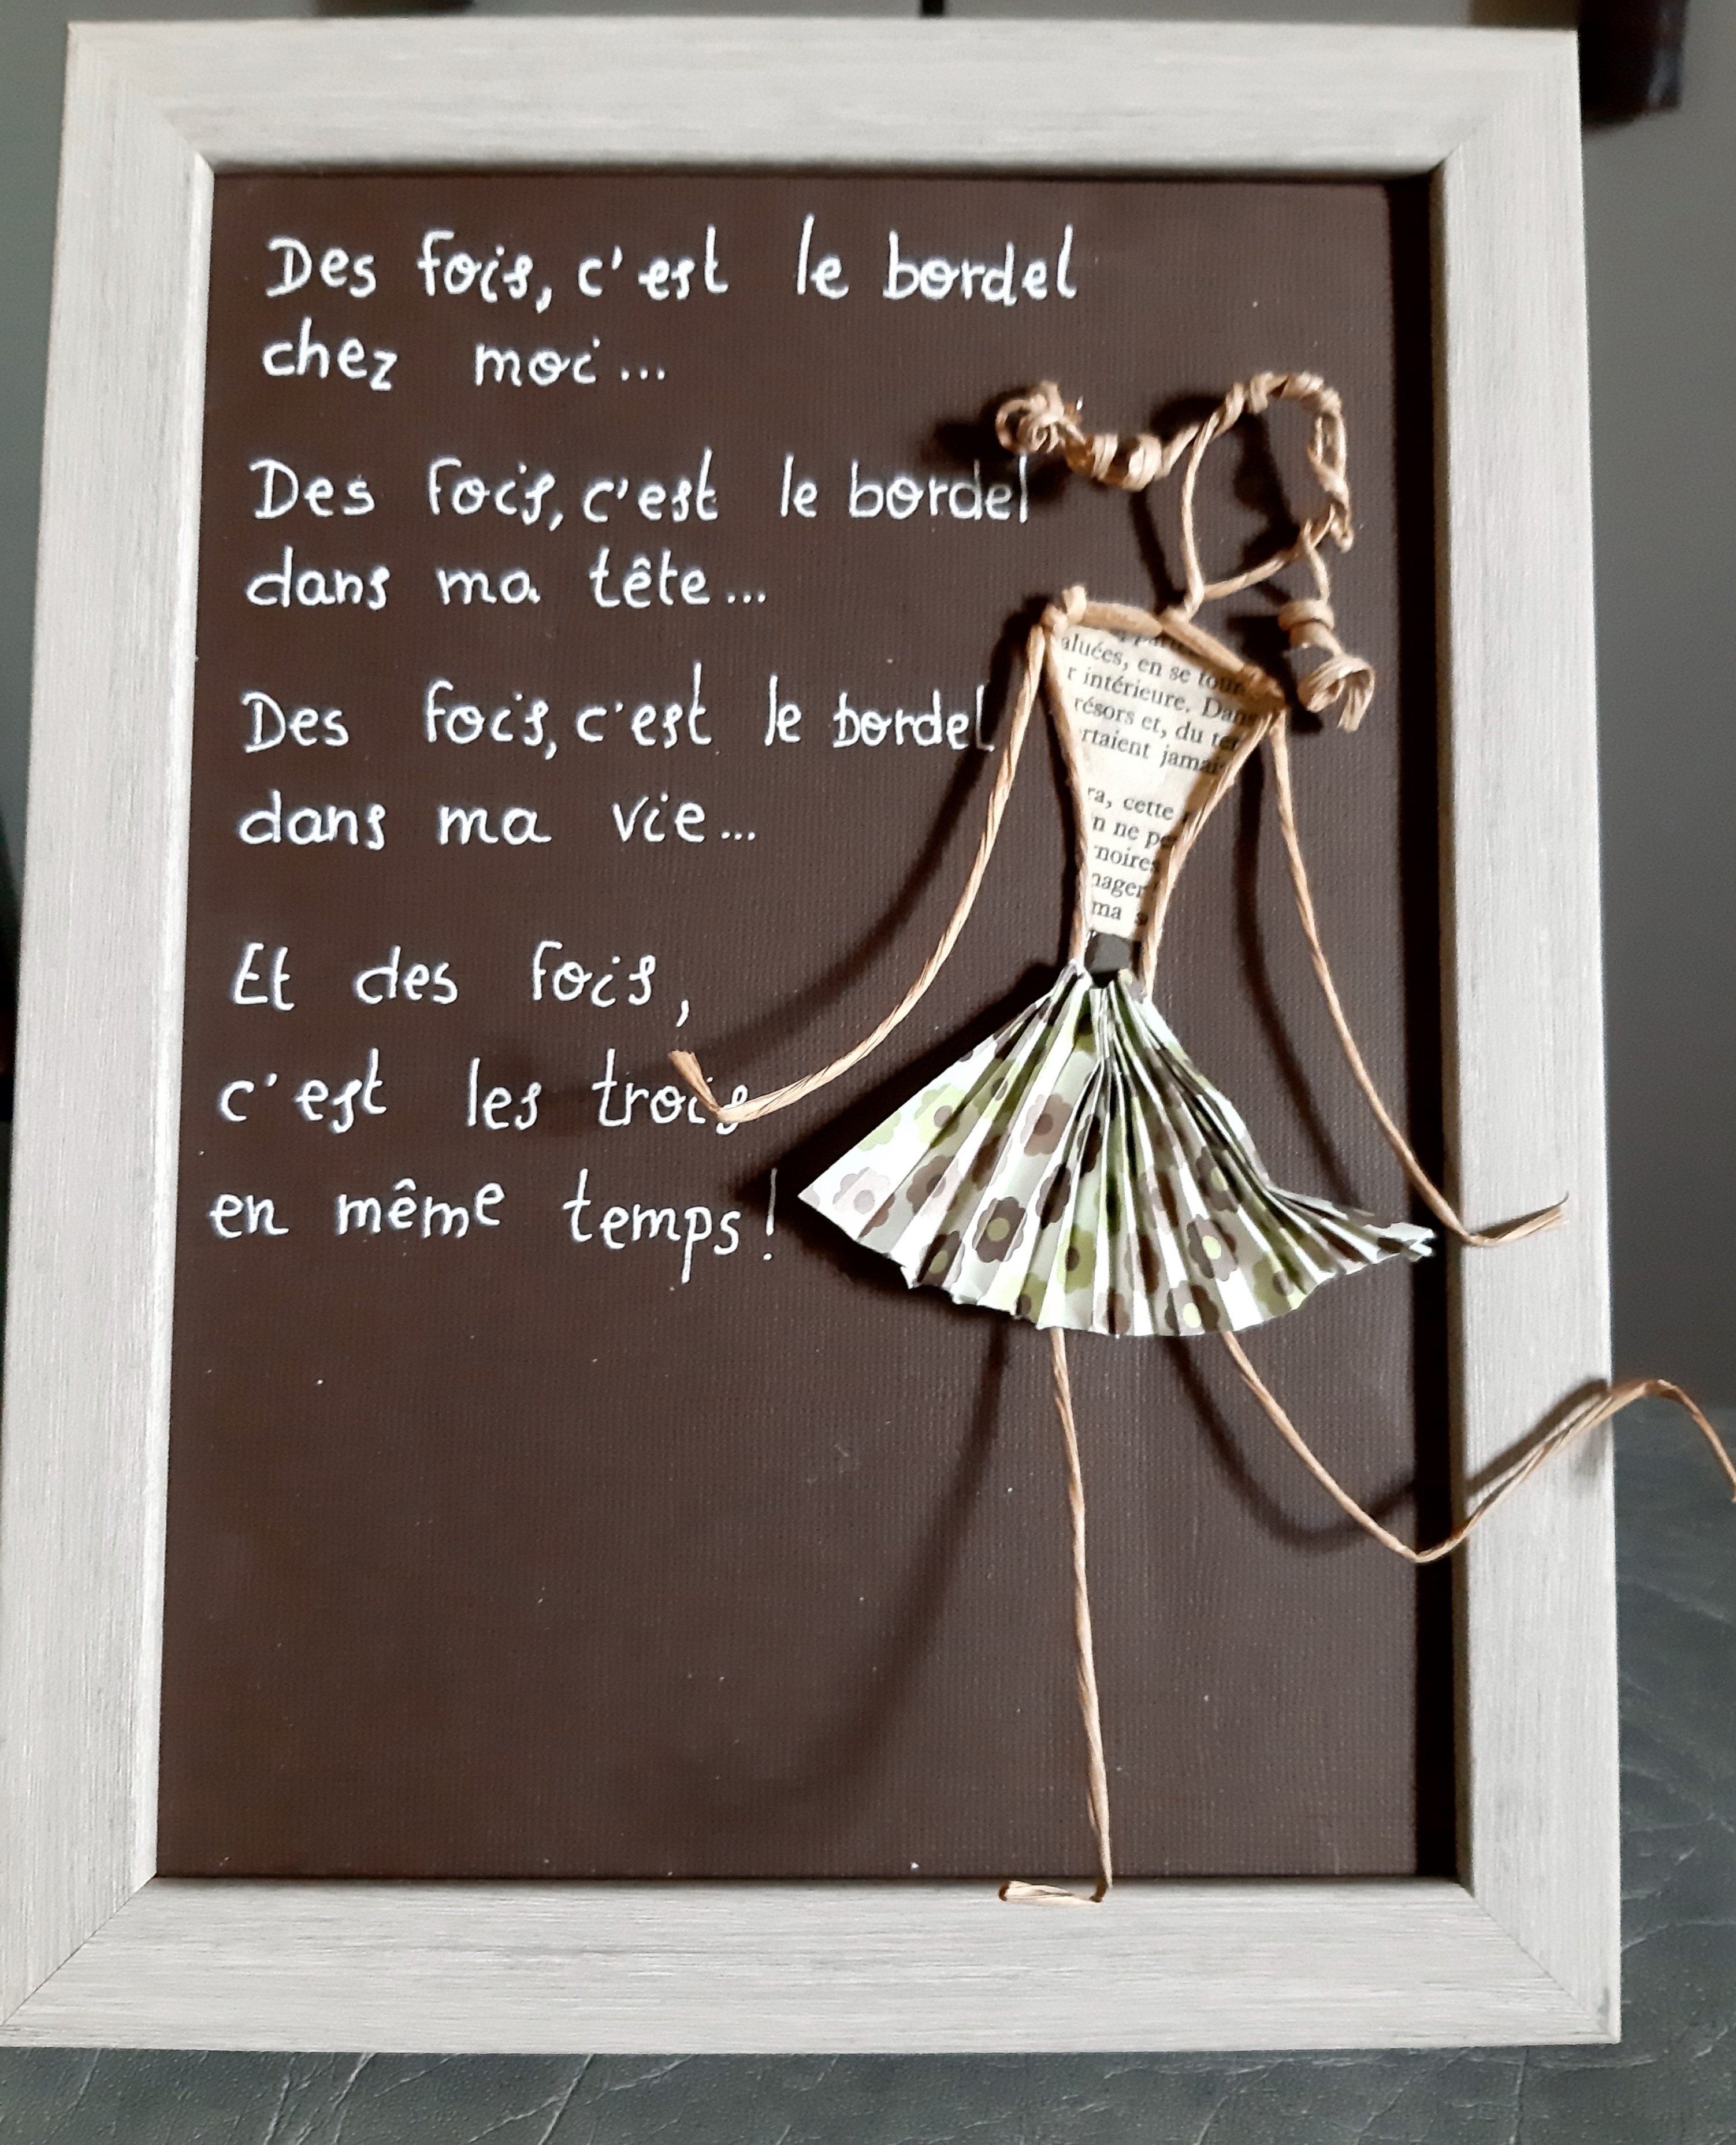 Des fois, c'est le bordel
chez moi...
Des fois, c'est le bordel
dans ma tête...
Des fois, c'est le bordel
dans ma vie...
Et des fois,
c'est les trois
en même temps!
aluées, en se tour
r intérieure. Dans
résors et, du ter
rtaient jamai
ra, cette
n ne pe
noires
nager
ma s